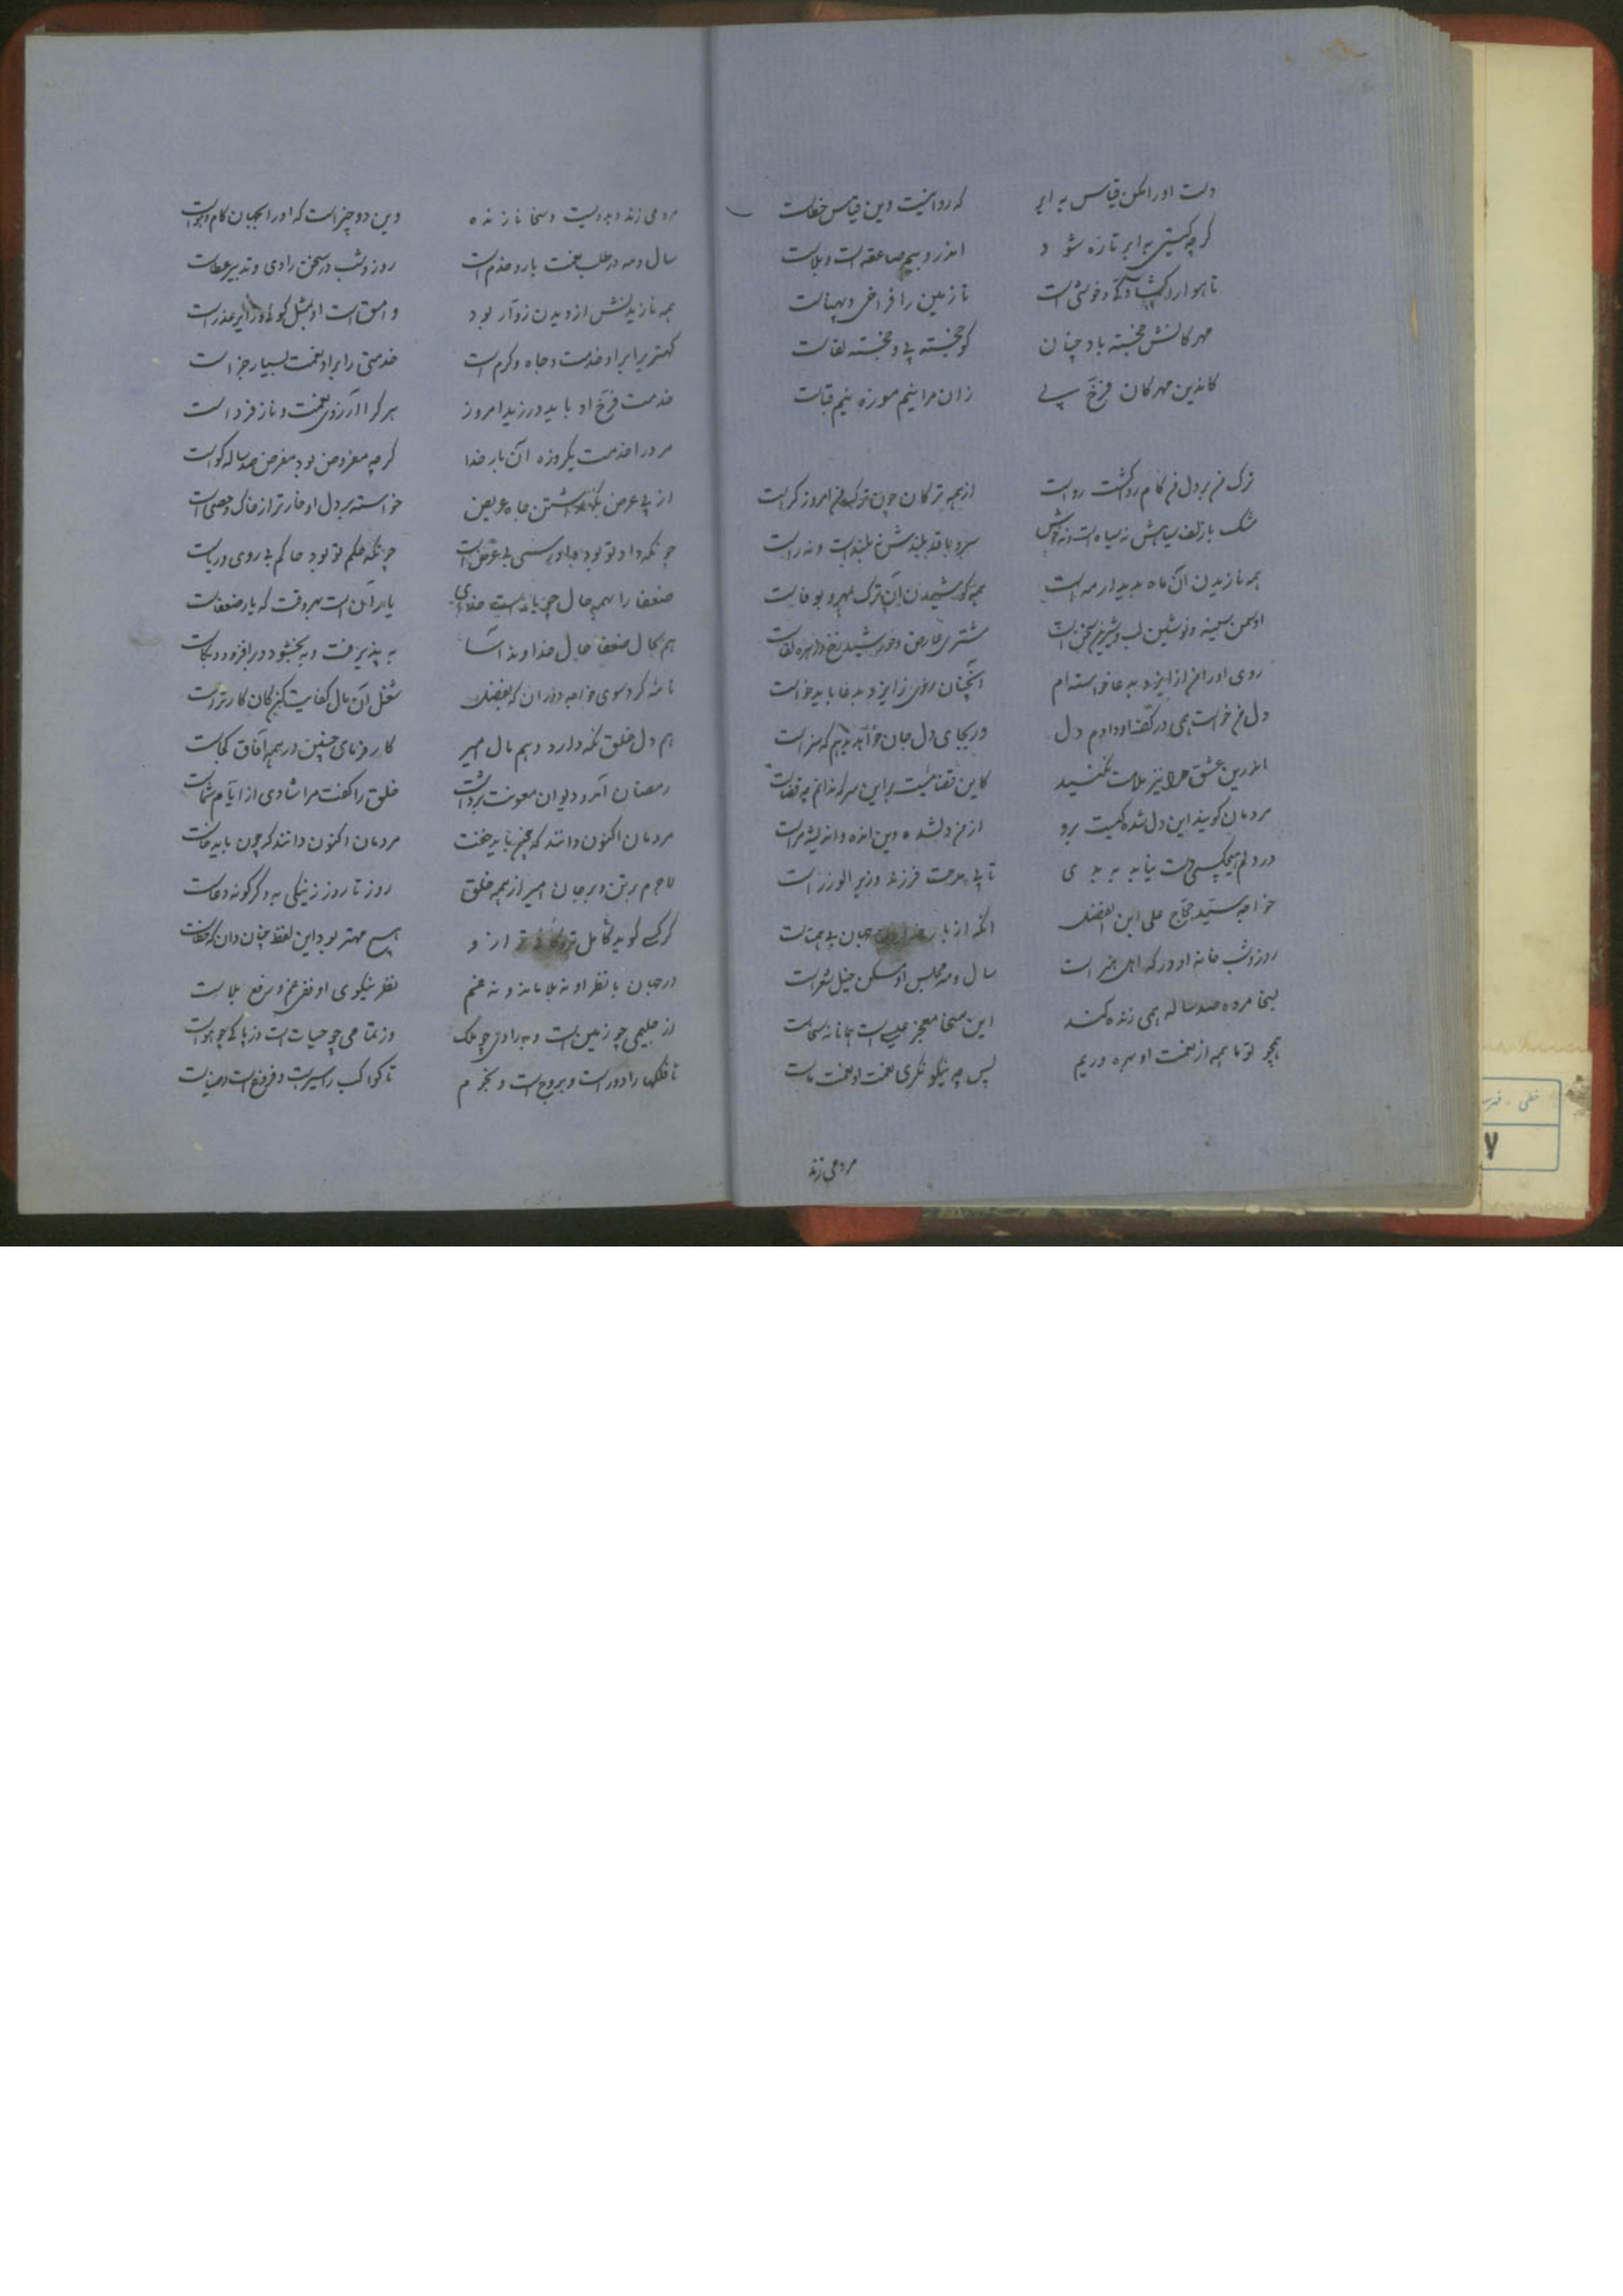 دست او را مکن قیاس به ابر که روا نیست وین قیاس خطاست
گرچه گیتی به ابر تازه شود اندرو بیم صاعقه است و بلاست
تا هوا را گشادگی و خوشی است تا زمین را فراخی و پهناست
مهرگانش خجسته باد چنان کو خجسته پی و خجسته لقاست
کاندین مهرگان فرخ پی زان مرا نیم موزه نیم قباست
ترک من بر دل من کامروا گشت و رواست از همه ترکان چون ترک من امروز کراست
مشک با زلف سیاهش نه سیاه است و نه خوش سرو با قد بلندش نه بلند است و نه راست
همه نازیدن آن ماه بدیدار مه است همه کوشیدن آن ترک بمهر و بوفاست
او سمن سینه و نوشین لب و شیرین سخن است مشتری عارض و خورشید رخ و زهره لقاست
روی او را من از ایزد بدعا خواسته‌ام آنچنان روی ز ایزد بدعا باید خواست
دل من خواست همی در کف او دادم دل ور بجای دل جان خواهد بدهم که سزاست
اندرین عشق مرا نیز ملامت مکنید کاین قضائیست بر این سر که ندانم چه قضاست
مردمان گویند این دل شده کیست برو از من دلشده وین انده و اندیشه مراست
در دلم هیچکسی دست نیابد به بدی تا پی مدحت فرزند وزیر الوزراست
خواجه سید حجاج علی ابن الفضل آنکه از بار جهان پی همت
روز و شب خانه او درگه اهل هنر است سال و مه مجلس او مسکن خیل شعراست
بسخا مرده صد ساله همی زنده کند این سخا معجز عیسی است همانا نه سخاست
همچو تو ما همه از نعمت او بهره وریم پس چه نیکو نگری نعمت او نعمت ماست
مردمی زند
مردمی زنده بدویست و سخا نازنده وین دو چیز است که او را بجهان کام و هواست
سال و مه در طلب نعمت یار و خدم است روز و شب در سخن رادی و تدبیر عطاست
همه نازیدنش از دیدن زوار بود وامق است او بمثل گوئی و زایر عذراست
کهتریرا بر او خدمت و جاه و کرم است خدمتی را بر او نعمت بسیار جزاست
خدمت فرخ او باید ورزید امروز هر که را آرزوی نعمت و ناز فرداست
مرد را خدمت یکروزه آن بار خدا گرچه مفروض بود مفرض صد ساله گواست
از پی عرض نگهداشتن جاه عریض خواسته بر دل او خوارتر از خاک و حصی است
چونکه داد تو بود داورسی بی عوض است چونکه حکم تو بود حاکم بی روی و ریاست
ضعفا را بهمه حال یار است خدای یار آن است بهر وقت که یار ضعفاست
هم بحال ضعفا حال خداوند آسا به پذیرفت و ببخشود و برافزود و بکاست
نامه کرد سوی خواجه دوران که بفضل شغل آن مال کفایت کن کان کار تراست
هم دل خلق نگه دارد و هم مال امیر کار فرمای چنین در همه آفاق کجاست
رمضان آمد و دیوان معونت برداشت خلق را گفت مرا شادی از ایام شماست
مردمان اکنون دانند که چون باید خفت مردمان اکنون دانند که چون باید خاست
لاجرم بر تن و بر جان امیر از همه خلق روز تا روز ز نیکی به دگرگونه دعاست
گر کسی گوید کامل تر و کافی تر ازو هیچ مهتر بود این لفظ چنان دان که خطاست
در جهان با نظر او نه بلا ماند و نه غم نظر نیکوی او نفی غم و رفع بلاست
از حلیمی چو زمین است و برادی چو فلک وز تمامی چو حیات است و ز پاکی چو هواست
تا فلکها را دور است و بروج است و نجوم تا کواکب را سیر است و فروغ است و ضیاست